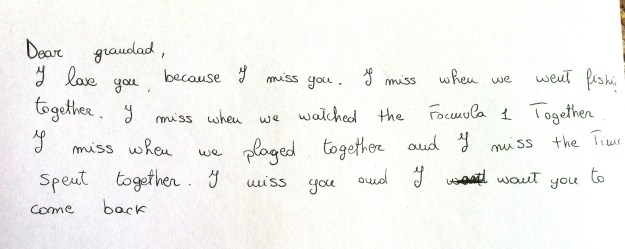 Dear grandad,
I love you, because I miss you. I miss when we went fishi
together. I miss when we watched the Formula 1 Together.
I miss when we played together and I miss the Time
spent together. I miss you and I want you to
come back